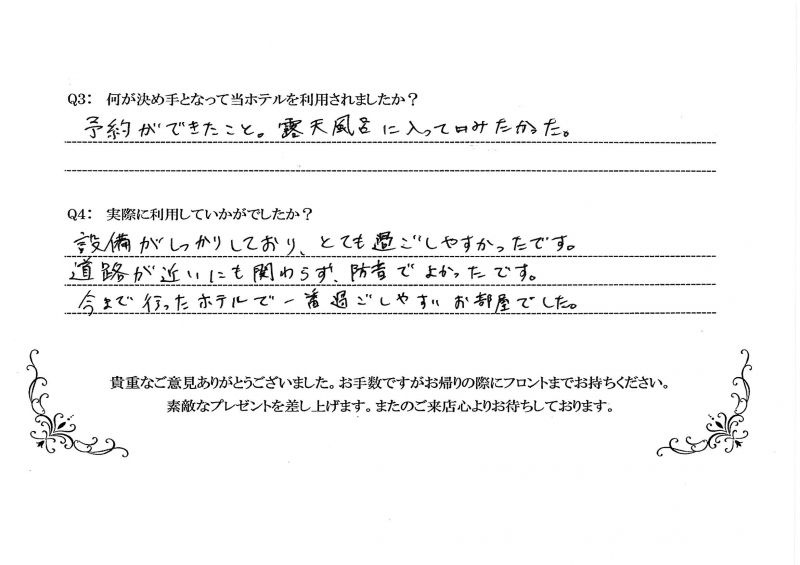 Q3: 何が決め手となって当ホテルを利用されましたか？
予約ができたこと。露天風呂に入ってみたかった。
Q4: 実際に利用していかがでしたか？
設備がしっかりしており、とても過ごしやすかったです。
道路が近いにも関わらず、防音でよかったです。
今まで行ったホテルで一番過ごしやすいお部屋でした。
貴重なご意見ありがとうございました。お手数ですがお帰りの際にフロントまでお持ちください。
素敵なプレゼントを差し上げます。またのご来店心よりお待ちしております。